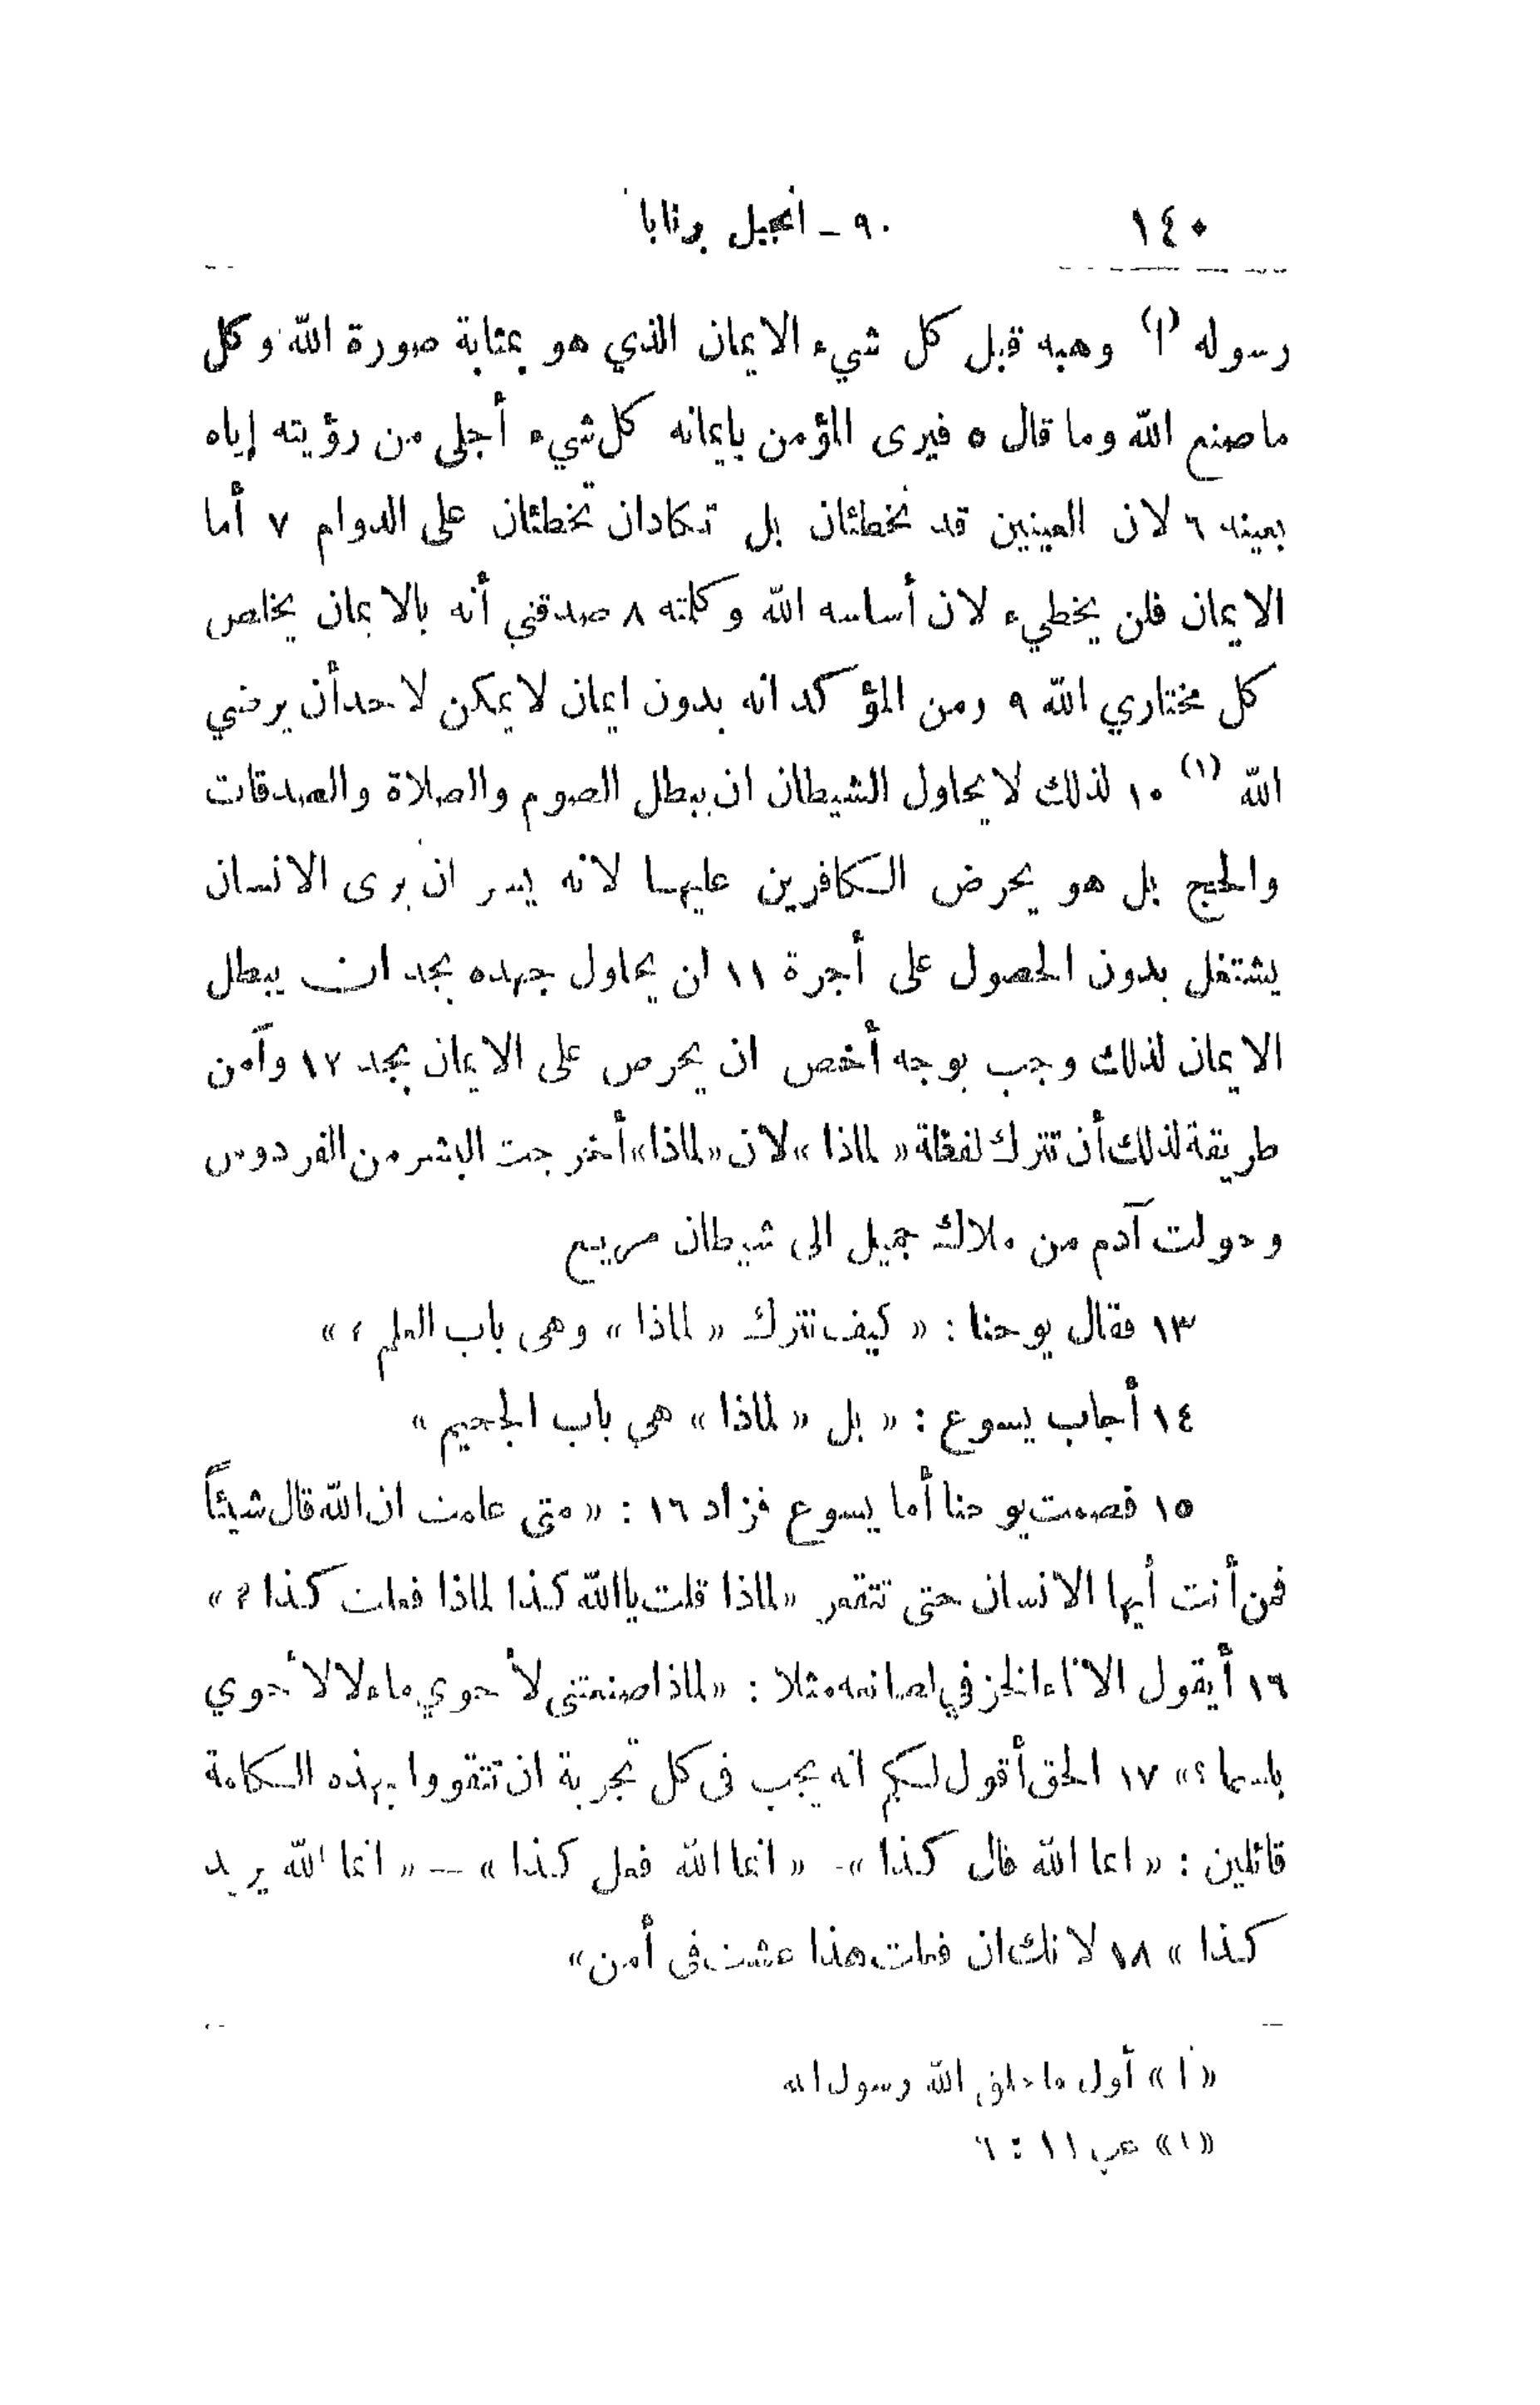 ١٤٠ ٩٠ - انجيل برنابا
رسوله (ا) وهبه قبل كل شيء الايمان الذي هو بمثابة صورة الله وكل
ما صنع الله وما قال ٥ فيرى المؤمن بايمانه كل شيء أجلى من رؤيته إياه
بعينه ٦ لان العينين قد تخطئان بل تكادان تخطئان على الدوام ٧ أما
الايمان فلن يخطيء لان أساسه الله وكلمته ٨ صدقني أنه بالايمان يخلص
كل مختاري الله ٩ ومن المؤكد انه بدون ايمان لا يمكن لاحد أن يرضي
الله (١) ١٠ لذلك لا يحاول الشيطان ان يبطل الصوم والصلاة والصدقات
والحج بل هو يحرض الكافرين عليها لانه يسر ان يرى الانسان
يشتغل بدون الحصول على أجرة ١١ ان يحاول جهده بجد ان يبطل
الايمان لذلك وجب بوجه أخص ان يحرص على الايمان بجد ١٢ وآمن
طريقة لذلك أن تترك لفظة «لماذا» لان «لماذا» أخرجت البشر من الفردوس
وحولت آدم من ملاك جميل الى شيطان مريع
١٣ فقال يوحنا : «كيف نترك «لماذا» وهى باب العلم ؟»
١٤ أجاب يسوع : «بل «لماذا» هي باب الجحيم»
١٥ فصمت يوحنا أما يسوع فزاد ١٦ : «متى علمت ان الله قال شيئاً
فمن أنت أيها الانسان حتى تتقعر «لماذا قلت يا الله كذا لماذا فعلت كذا ؟»
١٦ أيقول الاناء الخزفي لصانعه مثلا : «لماذا صنعتنى لأحوي ماء لا لأحوي
بلسما ؟» ١٧ الحق أقول لكم انه يجب فى كل تجربة ان تتقووا بهذه الكلمة
قائلين : «انما الله قال كذا» - «انما الله فعل كذا» — «انما الله يريد
كذا» ١٨ لانك ان فعلت هذا عشت فى أمن»
«ا» أول ما خلق الله رسول الله
«١» عب ١١ : ٦